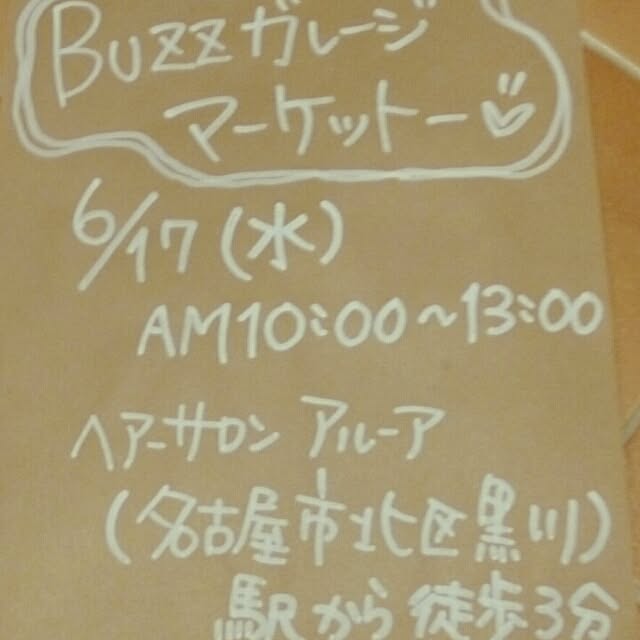 Buzzガレージ
マーケットー♡
6/17(水)
AM10:00~13:00
ヘアーサロン アルーア
(名古屋市北区黒川)
駅から徒歩3分